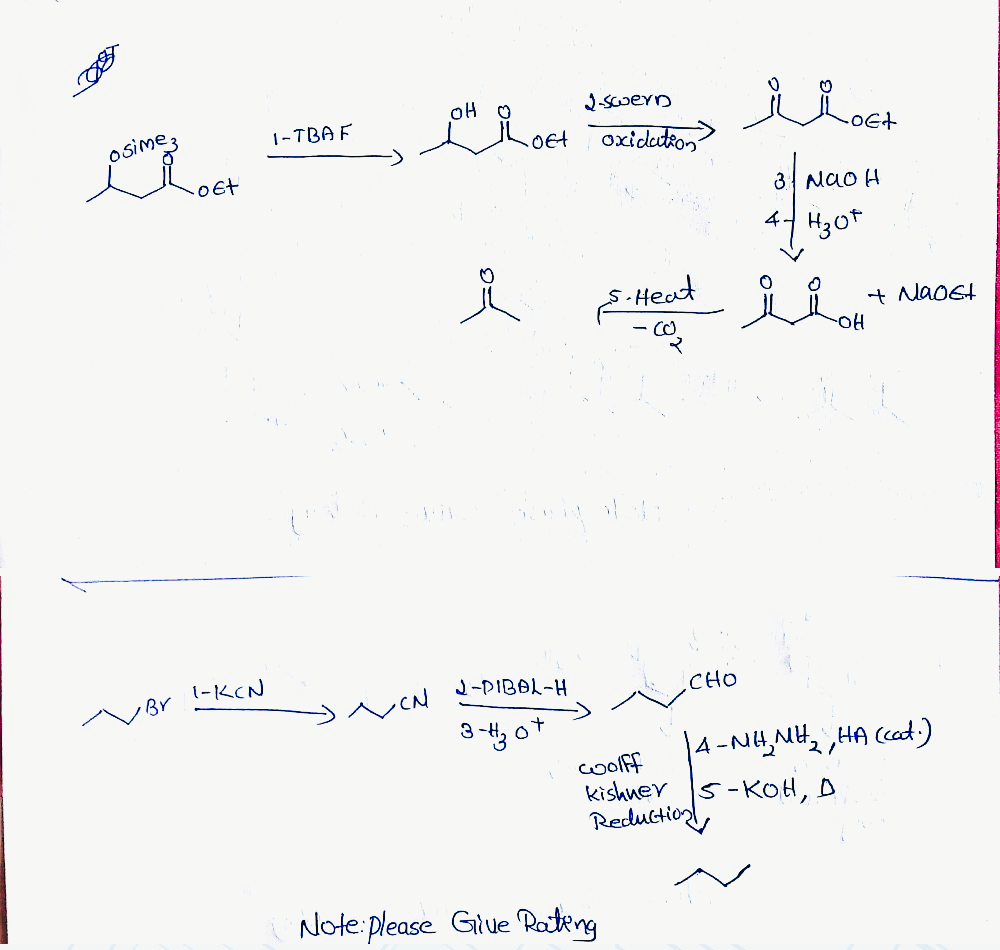 OSiMe3
O
OEt
1-TBAF
OH O
OEt
2-swern
oxidation
O O
OEt
3 NaOH
4- H3O+
O O
OH
+ NaOEt
5.Heat
-CO2
O
Br
1-KCN
CN
2-DIBAL-H
3-H3O+
CHO
4-NH2NH2, HA (cat.)
5-KOH, Δ
woolff
kishner
Reduction
Note: please Give Rating